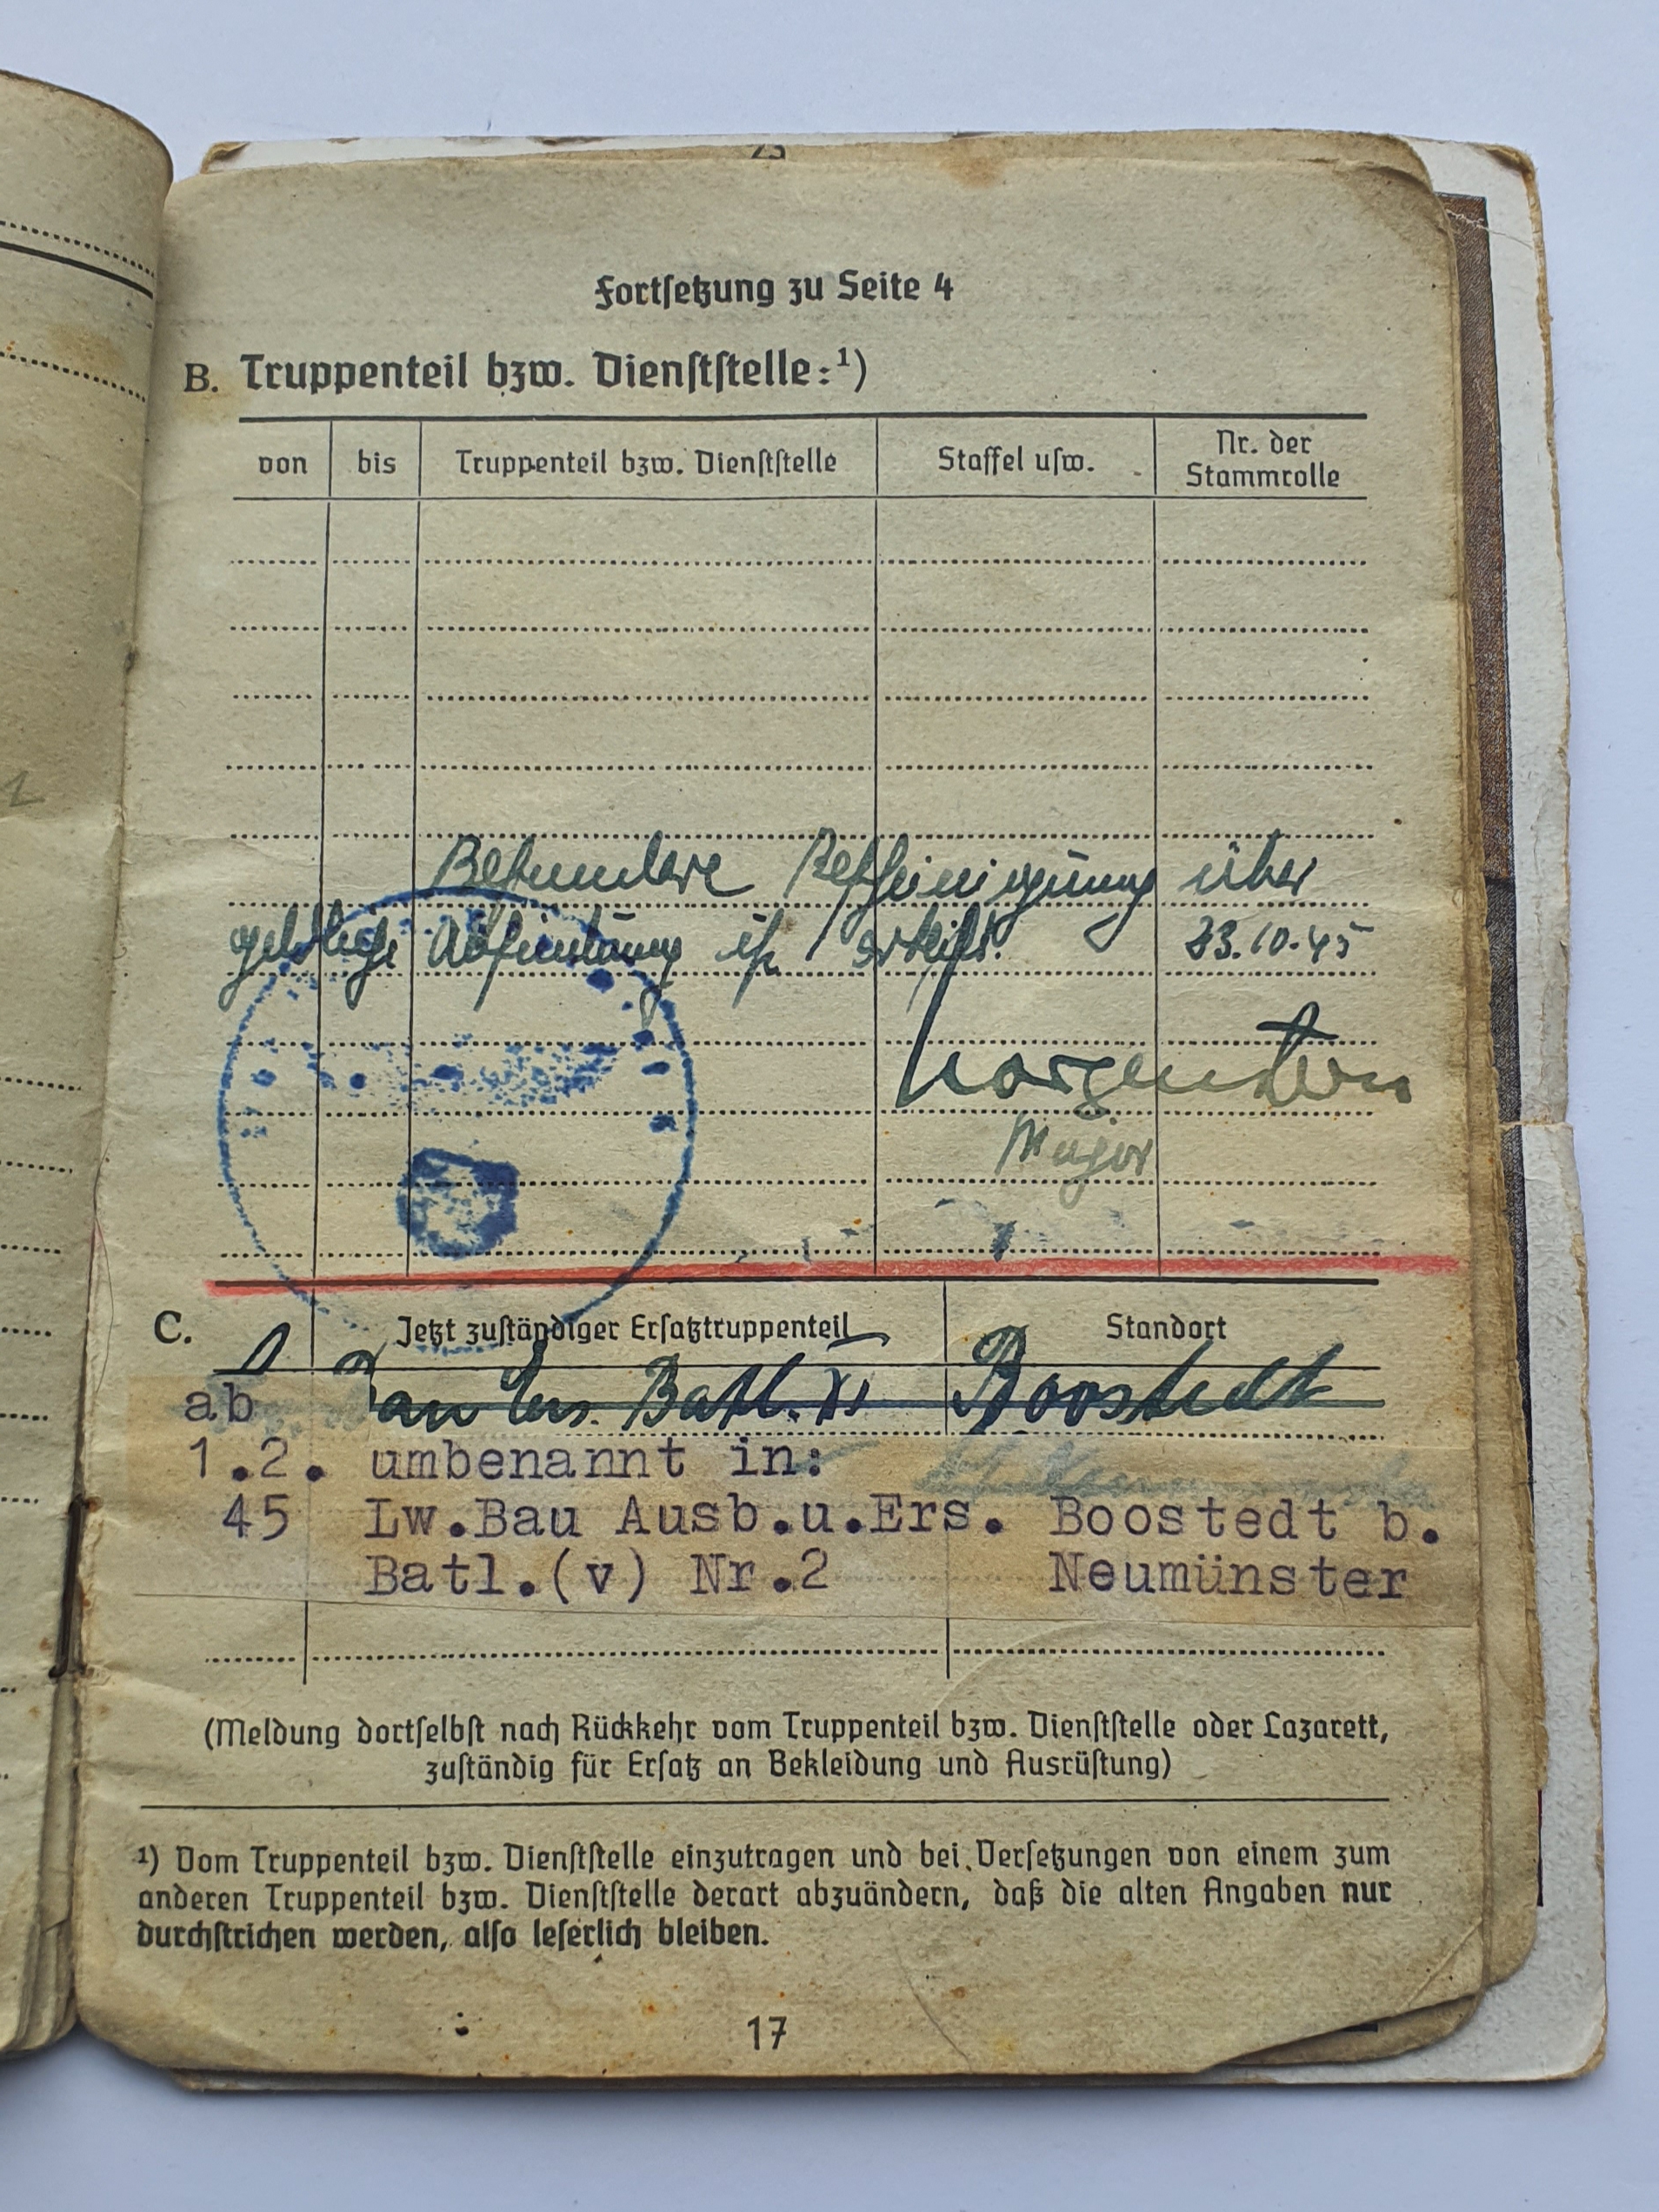 Fortsetzung zu Seite 4
B. Truppenteil bzw. Dienststelle:¹)
von bis Truppenteil bzw. Dienststelle Staffel usw. Nr. der Stammrolle
Besondere Bescheinigung über
geldliche Abfindung ist erteilt. 23.10.45
Morgenstern
Major
C. Jetzt zuständiger Ersatztruppenteil Standort
Bau Ers. Batl. XI Boostedt
ab
1.2. umbenannt in:
45 Lw.Bau Ausb.u.Ers. Boostedt b.
Batl.(v) Nr.2 Neumünster
(Meldung dortselbst nach Rückkehr vom Truppenteil bzw. Dienststelle oder Lazarett,
zuständig für Ersatz an Bekleidung und Ausrüstung)
¹) Vom Truppenteil bzw. Dienststelle einzutragen und bei Versetzungen von einem zum
anderen Truppenteil bzw. Dienststelle derart abzuändern, daß die alten Angaben nur
durchstrichen werden, also leserlich bleiben.
17